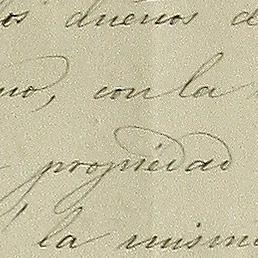 los dueños d
no, con la
propriedad
la mism